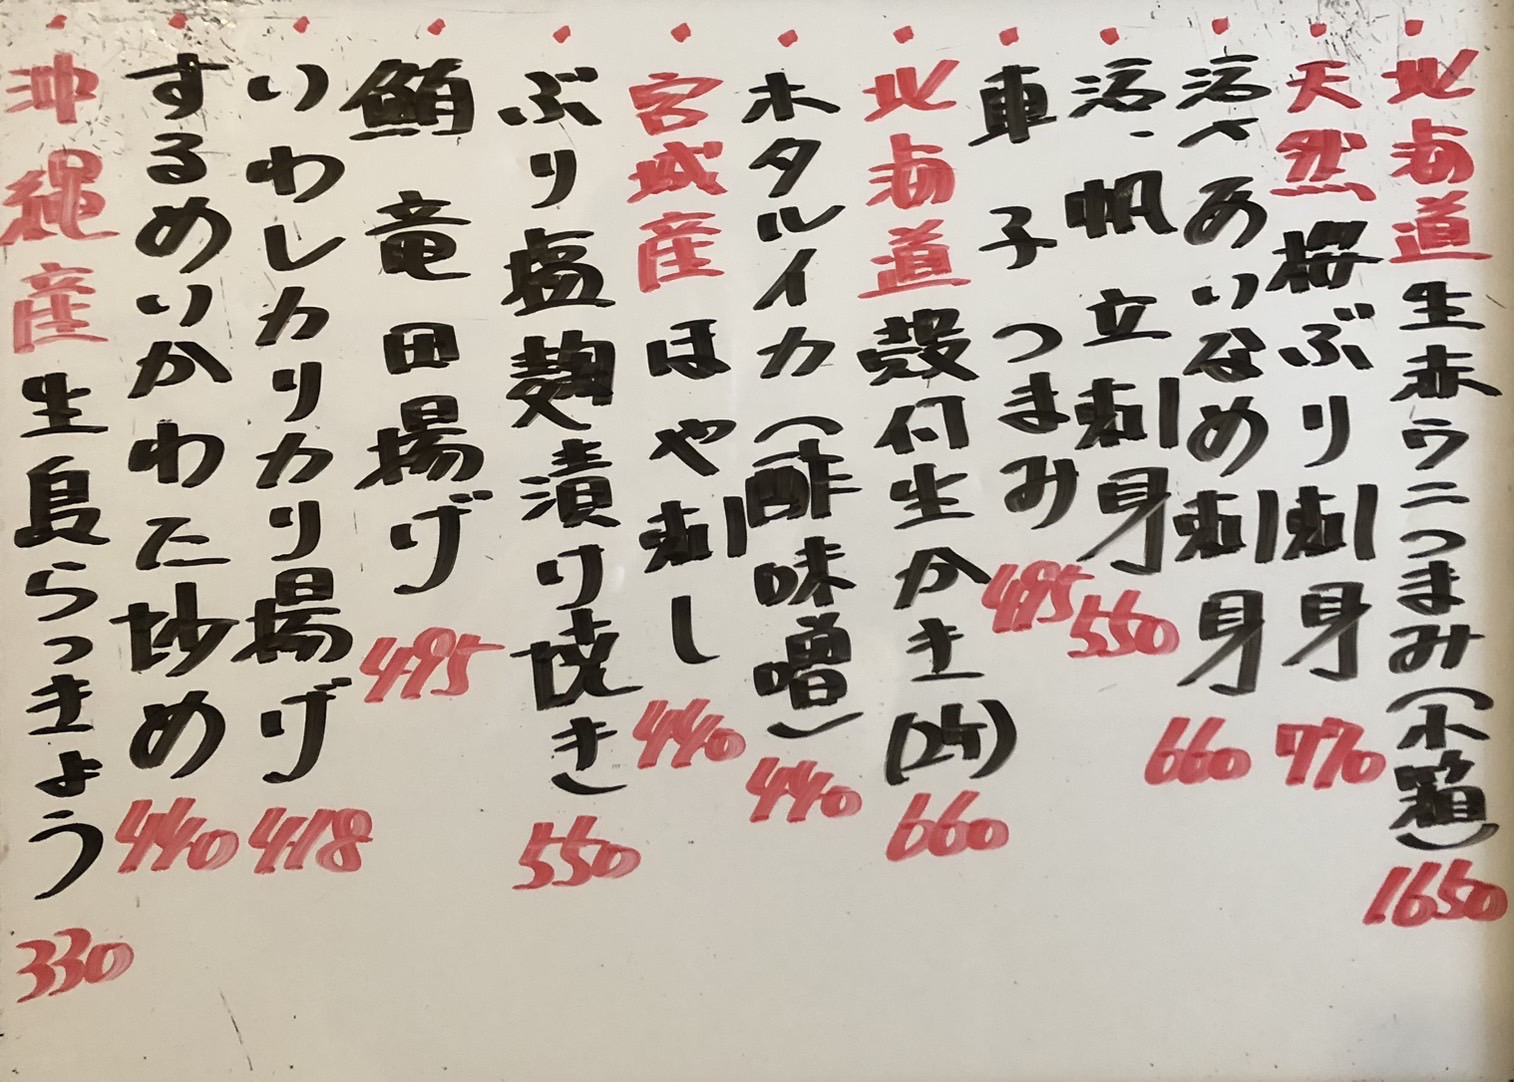 ・北海道生赤ウニつまみ(木箱)1650
・天然桜ぶり刺身770
・活〆あいなめ刺身660
・活・帆立刺身550
・車子つまみ495
・北海道殻付生かき(2ヶ)660
・ホタルイカ(酢味噌)440
・宮城産ほや刺し440
・ぶり塩麹漬け焼き550
・鮪竜田揚げ495
・いわしカリカリ揚げ418
・するめいかわた炒め440
・沖縄産生島らっきょう330